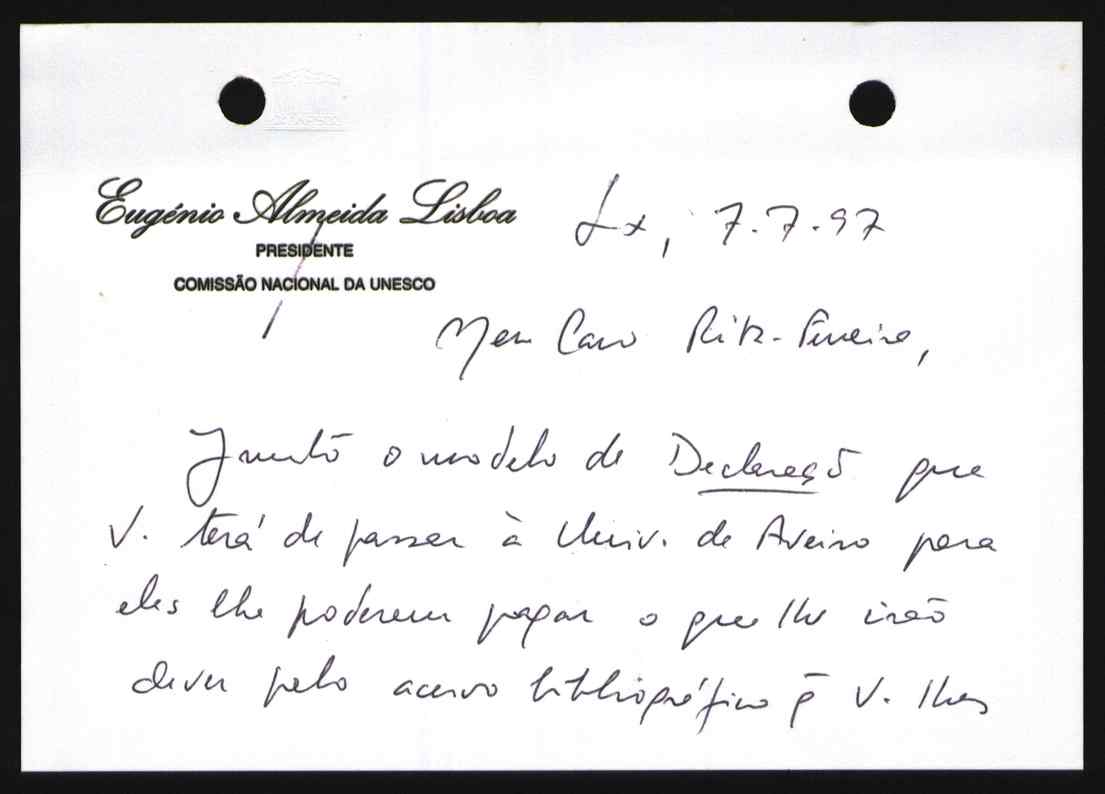 Eugénio Almeida Lisboa
PRESIDENTE
COMISSÃO NACIONAL DA UNESCO
Lx, 7.7.97
Meu Caro Ritz-Ferreira,
Junto o modelo de Declaração que
V. terá de passar à Univ. de Aveiro para
eles lhe poderem pagar o que lhe irão
dever pelo acervo bibliográfico q̃ V. lhes